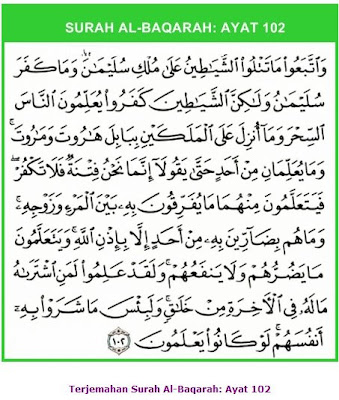 SURAH AL-BAQARAH: AYAT 102
وَاتَّبَعُوا مَا تَتْلُوا الشَّيَاطِينُ عَلَىٰ مُلْكِ سُلَيْمَانَ ۖ وَمَا كَفَرَ
سُلَيْمَانُ وَلَٰكِنَّ الشَّيَاطِينَ كَفَرُوا يُعَلِّمُونَ النَّاسَ
السِّحْرَ وَمَا أُنزِلَ عَلَى الْمَلَكَيْنِ بِبَابِلَ هَارُوتَ وَمَارُوتَ ۚ
وَمَا يُعَلِّمَانِ مِنْ أَحَدٍ حَتَّىٰ يَقُولَا إِنَّمَا نَحْنُ فِتْنَةٌ فَلَا تَكْفُرْ ۖ
فَيَتَعَلَّمُونَ مِنْهُمَا مَا يُفَرِّقُونَ بِهِ بَيْنَ الْمَرْءِ وَزَوْجِهِ ۚ
وَمَا هُم بِضَارِّينَ بِهِ مِنْ أَحَدٍ إِلَّا بِإِذْنِ اللَّهِ ۚ وَيَتَعَلَّمُونَ
مَا يَضُرُّهُمْ وَلَا يَنفَعُهُمْ ۚ وَلَقَدْ عَلِمُوا لَمَنِ اشْتَرَاهُ
مَا لَهُ فِي الْآخِرَةِ مِنْ خَلَاقٍ ۚ وَلَبِئْسَ مَا شَرَوْا بِهِ
أَنفُسَهُمْ ۚ لَوْ كَانُوا يَعْلَمُونَ ١٠٢
Terjemahan Surah Al-Baqarah: Ayat 102